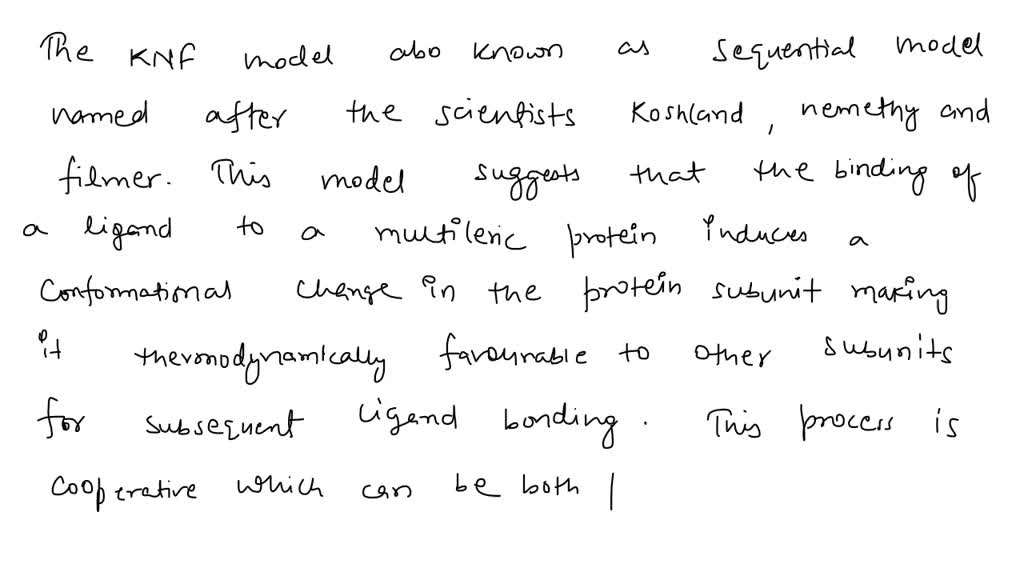 The KNF model also known as sequential model
named after the scientists Koshland, nemethy and
filmer. This model suggests that the binding of
a ligand to a multileric protein induces a
conformational change in the protein subunit making
it thermodynamically favourable to other subunits
for subsequent ligand bonding. This process is
cooperative which can be both